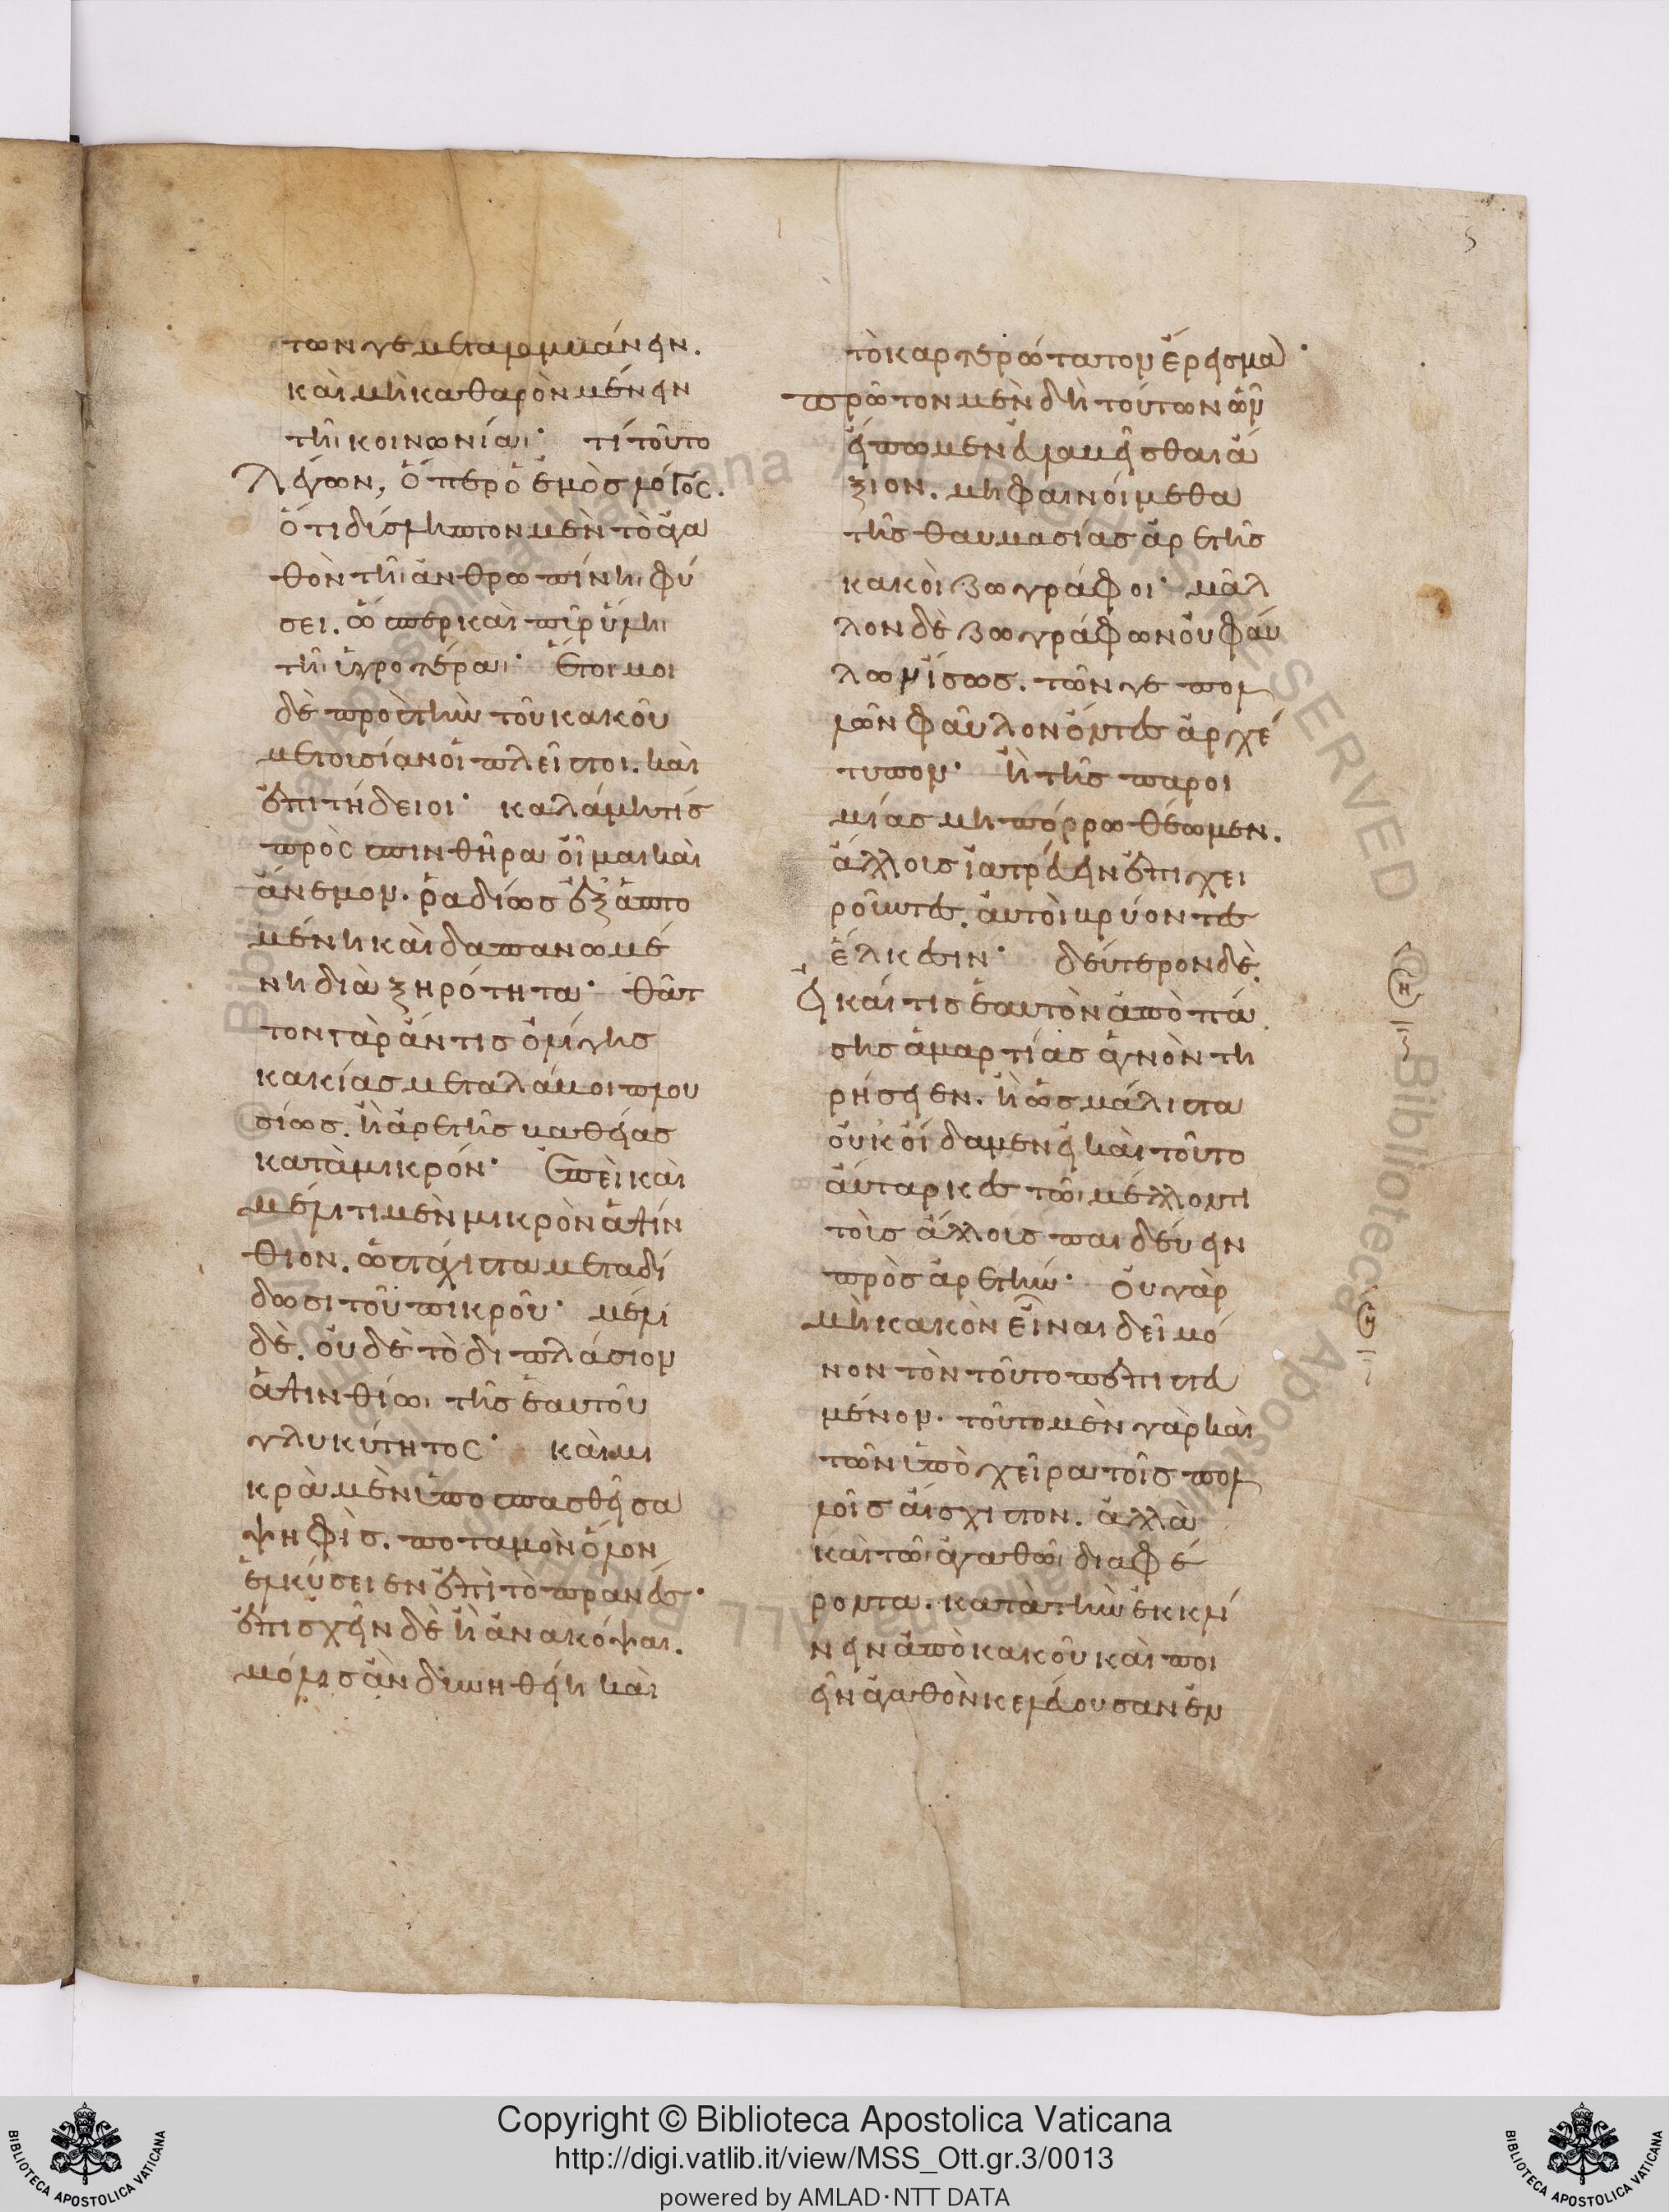 των γε μεταλαμβάνειν.
καὶ μὴ καθαρὸν μένειν
τῆι κοινωνίαι· τί τοῦτο
λέγων, ὅπερ ὁ ἐμὸς λόγος.
ὅτι δύσληπτον μὲν τὸ ἀγα
θὸν τῆι ἀνθρωπίνηι φύ
σει. ὥσπερ καὶ πῦρ ὕληι
τῆι ὑγροτέραι· ἕτοιμοι
δὲ πρὸς τὴν τοῦ κακοῦ
μετουσίαν οἱ πλεῖστοι. καὶ
ἐπιτήδειοι· καλάμη τις
πρὸς σπινθῆρα οἶμαι καὶ
ἄνεμον. ῥαδίως ἐξαπτο
μένη καὶ δαπανωμέ
νη διὰ ξηρότητα· θᾶτ
τον γὰρ ἄν τις ὀλίγης
κακίας μεταλάβοι πλου
σίως. ἢ ἀρετῆς βαθείας
κατὰ μικρόν· ἐπεὶ καὶ
μέλιτι μὲν μικρὸν ἀψίν
θιον. ὡς τάχιστα μεταδί
δωσι τοῦ πικροῦ· μέλι
δὲ. οὐδὲ τὸ διπλάσιον
ἀψινθίωι τῆς ἑαυτοῦ
γλυκύτητος· καὶ μι
κρὰ μὲν ὑποσπασθεῖσα
ψηφὶς. ποταμὸν ὅλον
ἑλκύσειεν ἐπὶ τὸ πρανές·
ἐπισχεῖν δὲ ἢ ἀνακόψαι.
μόλις ἂν δυνηθείη καὶ
τὸ καρτερώτατον ἔρεισμα·
πρῶτον μὲν δὴ τούτων ὧν
εἴπωμεν εὐλαβεῖσθαι ἄ
ξιον. μὴ φαινοίμεθα
τῆς θαυμασίας ἀρετῆς
κακοὶ ζωγράφοι· μᾶλ
λον δὲ ζωγράφων οὐ φαύ
λων ἴσως. τῶν γε πολ
λῶν φαῦλον ὄντες ἀρχέ
τυπον· ἢ τῆς παροι
μίας μὴ πόρρω θέωμεν.
ἄλλους ἰατρεύειν ἐπιχει
ροῦντες. αὐτοὶ βρύοντες
ἕλκεσιν· δεύτερον δὲ.
εἰ καί τις ἑαυτὸν ἀπὸ πά
σης ἁμαρτίας ἁγνὸν τη
ρήσειεν. ἢ ὡς μάλιστα
οὐκ οἶδα μὲν εἰ καὶ τοῦτο
αὔταρκες τῶι μέλλοντι
τοὺς ἄλλους παιδεύειν
πρὸς ἀρετήν· οὐ γὰρ
μὴ κακὸν εἶναι δεῖ μό
νον τὸν τοῦτο πεπιστευ
μένον. τοῦτο μὲν γὰρ καὶ
τῶν ὑπὸ χεῖρα τοῖς πολ
λοῖς αἴσχιστον. ἀλλὰ
καὶ τῶι ἀγαθῶι διαφέ
ροντα. κατὰ τὴν ἐκκλί
νειν ἀπὸ κακοῦ καὶ ποι
εῖν ἀγαθὸν κελεύουσαν ἐν
Copyright © Biblioteca Apostolica Vaticana
http://digi.vatlib.it/view/MSS_Ott.gr.3/0013
powered by AMLAD·NTT DATA
BIBLIOTECA APOSTOLICA VATICANA
BIBLIOTECA APOSTOLICA VATICANA